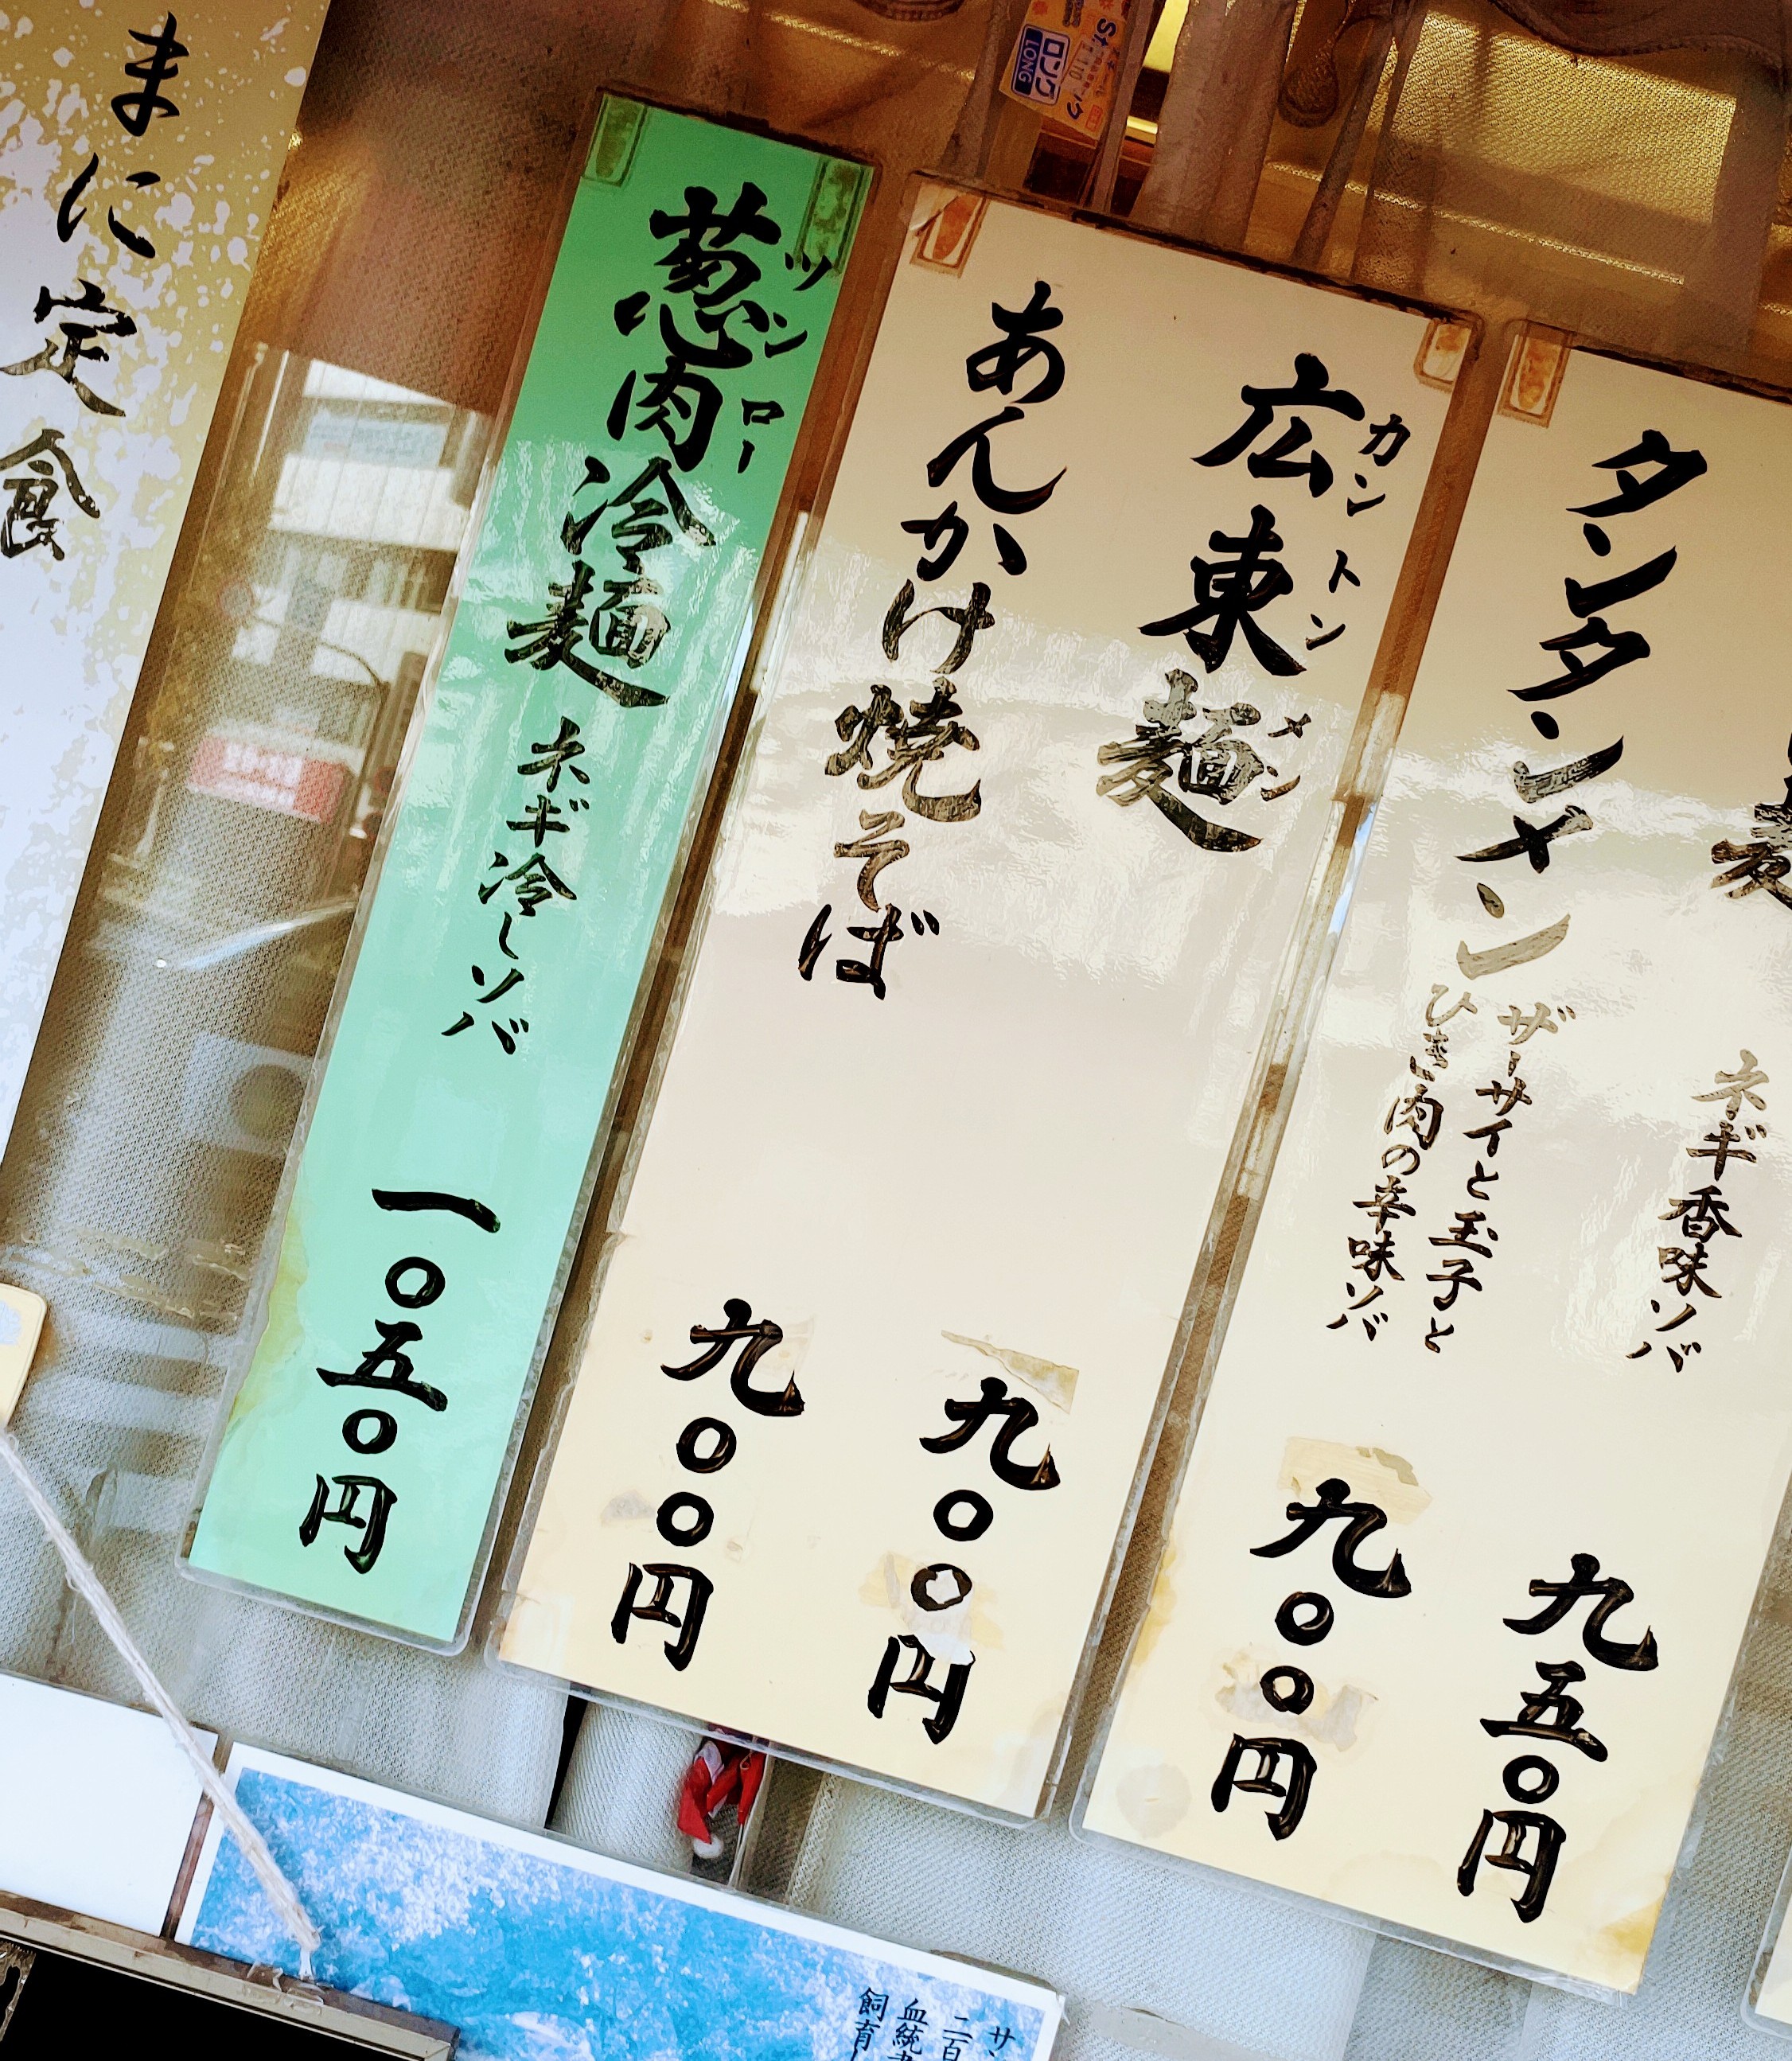 ネギ香味ソバ
九五〇円
タンタンメン
ザーサイと玉子と
ひき肉の辛味ソバ
九〇〇円
広東麺
カントンメン
九〇〇円
あんかけ焼そば
九〇〇円
葱肉冷麺
ツンロー
ネギ冷しソバ
一〇五〇円
まに定食
ロング
LONG
血統
飼育